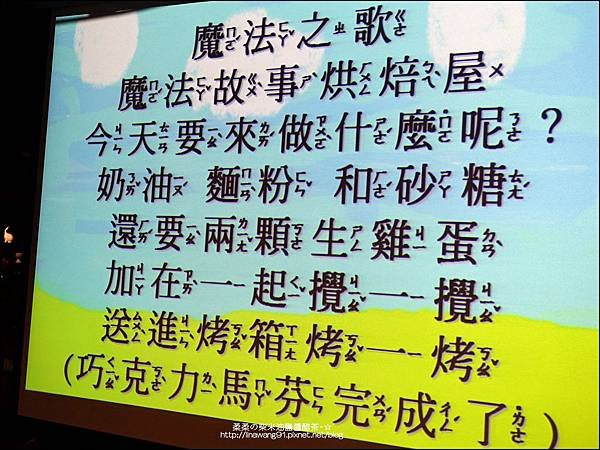 魔法之歌
魔法故事烘焙屋
今天要來做什麼呢？
奶油 麵粉 和砂糖
還要兩顆生雞蛋
加在一起攪一攪
送進烤箱烤一烤
(巧克力馬芬完成了)
柔柔の柴米油鹽醬醋茶・☆
http://linawang91.pixnet.net/blog